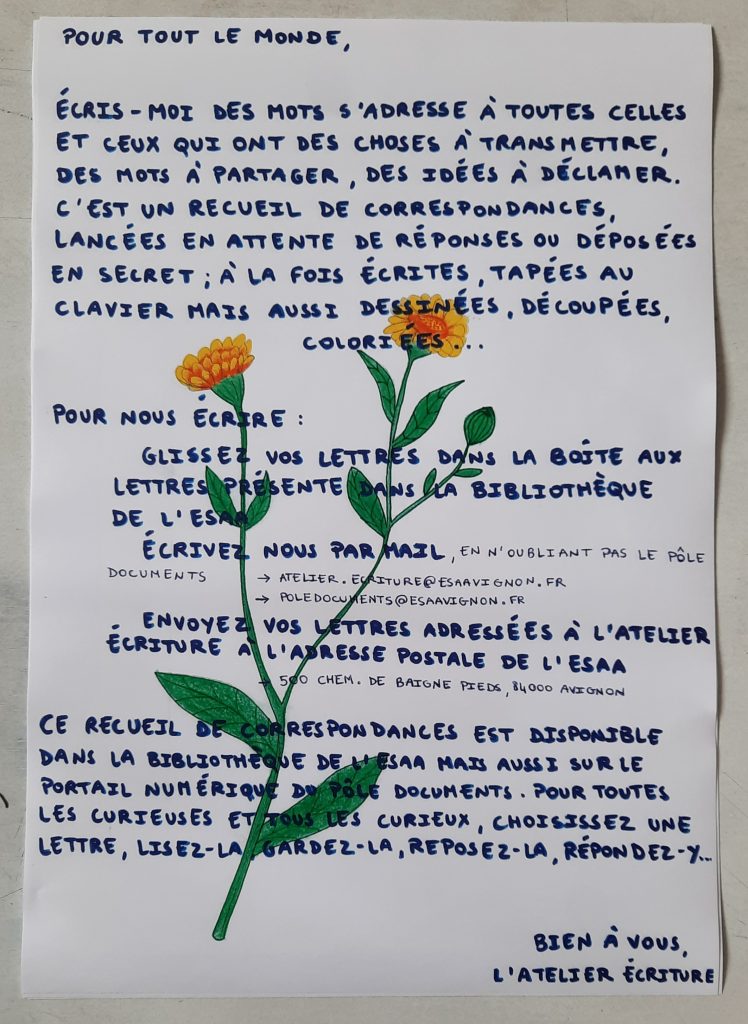 POUR TOUT LE MONDE,
ÉCRIS-MOI DES MOTS S'ADRESSE À TOUTES CELLES
ET CEUX QUI ONT DES CHOSES À TRANSMETTRE,
DES MOTS À PARTAGER, DES IDÉES À DÉCLAMER.
C'EST UN RECUEIL DE CORRESPONDANCES,
LANCÉES EN ATTENTE DE RÉPONSES OU DÉPOSÉES
EN SECRET; À LA FOIS ÉCRITES, TAPÉES AU
CLAVIER MAIS AUSSI DESSINÉES, DÉCOUPÉES,
COLORIÉES...
POUR NOUS ÉCRIRE :
GLISSEZ VOS LETTRES DANS LA BOÎTE AUX
LETTRES PRÉSENTE DANS LA BIBLIOTHÈQUE
DE L'ESAA
ÉCRIVEZ NOUS PAR MAIL, EN N'OUBLIANT PAS LE PÔLE
DOCUMENTS → ATELIER.ECRITURE@ESAAVIGNON.FR
→ POLEDOCUMENTS@ESAAVIGNON.FR
ENVOYEZ VOS LETTRES ADRESSÉES À L'ATELIER
ÉCRITURE À L'ADRESSE POSTALE DE L'ESAA
→ 500 CHEM. DE BAIGNE PIEDS, 84000 AVIGNON
CE RECUEIL DE CORRESPONDANCES EST DISPONIBLE
DANS LA BIBLIOTHÈQUE DE L'ESAA MAIS AUSSI SUR LE
PORTAIL NUMÉRIQUE DU PÔLE DOCUMENTS. POUR TOUTES
LES CURIEUSES ET TOUS LES CURIEUX, CHOISISSEZ UNE
LETTRE, LISEZ-LA, GARDEZ-LA, REPOSEZ-LA, RÉPONDEZ-Y...
BIEN À VOUS,
L'ATELIER ÉCRITURE